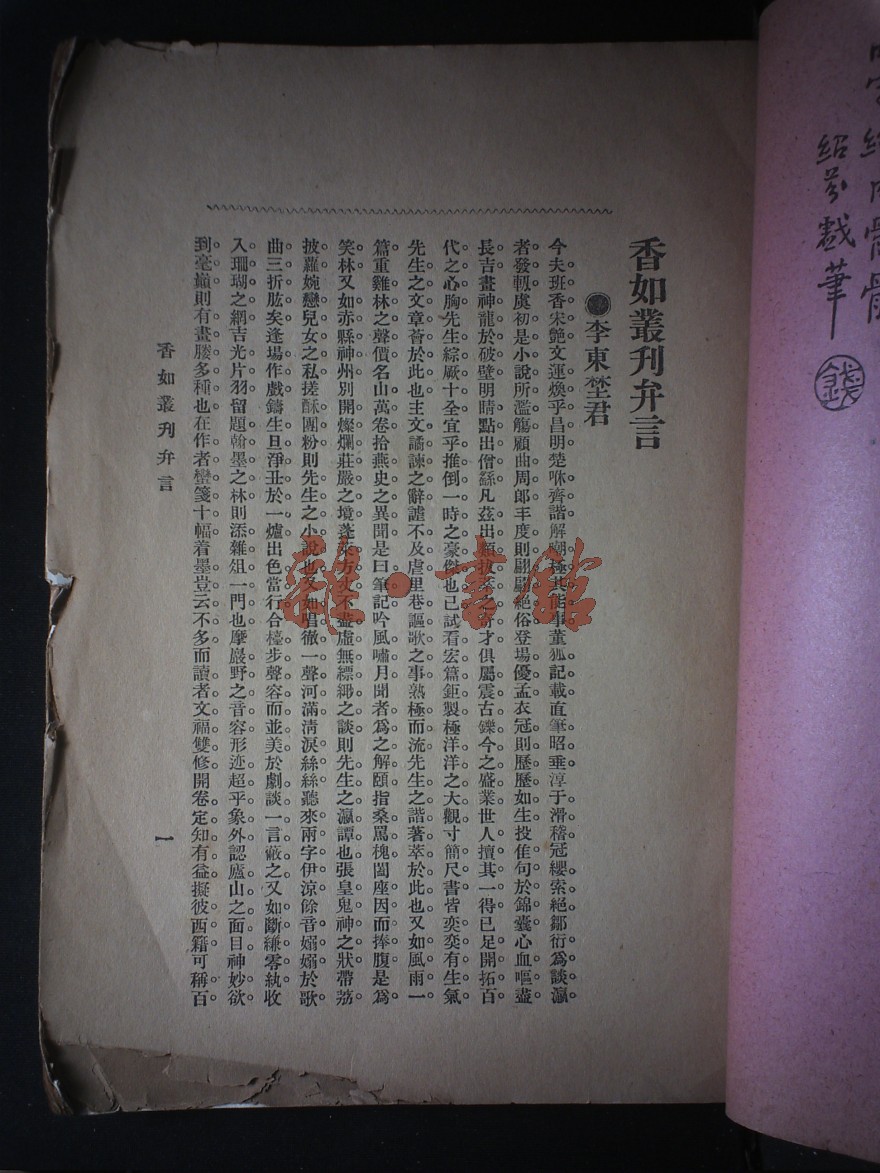 紹芬戲筆
錢
香如叢刊弁言
李東埜君
今夫班香宋艶文運煥乎昌明。楚咻齊諧解嘲極其能事。董狐記載直筆昭垂。淳于滑稽冠纓索絕。鄒衍爲談瀛
者發軔。虞初是小說所濫觴。顧曲周郎丰度則翩翩絕俗。登場優孟衣冠則歷歷如生。投隹句於錦囊心血嘔盡
長吉。畫神龍於破壁明睛點出僧繇。凡茲出類拔萃之奇才俱屬震古鑠今之盛業。世人擅其一得已足開拓百
代之心胸。先生綜厥十全宜乎推倒一時之豪傑也已。試看宏篇鉅製極洋洋之大觀。寸簡尺書皆奕奕有生氣。
先生之文章薈於此也。主文譎諫之辭謔不及虐。里巷謳歌之事熟極而流。先生之諧著萃於此也。又如風雨一
篇重雞林之聲價。名山萬卷拾燕史之異聞。是曰筆記。吟風嘯月聞者爲之解頤。指桑罵槐闔座因而捧腹。是爲
笑林。又如赤縣神州別開燦爛莊嚴之境。蓬萊方丈不盡虛無縹緲之談。則先生之瀛譚也。張皇鬼神之狀帶荔
披蘿。婉戀兒女之私搓酥團粉。則先生之小說也。又如唱徹一聲河滿淸淚絲絲。聽來兩字伊涼餘音嫋嫋。於歌
曲三折肱矣。逢場作戲鑄生旦淨丑於一爐。出色當行合檯步聲容而並美。於劇談一言蔽之。又如斷縑零紈收
入珊瑚之網。吉光片羽留題翰墨之林。則添雜俎一門也。摩巖野之音容形迹超乎象外。認廬山之面目神妙欲
到毫巓。則有畫賸多種也。在作者蠻箋十幅着墨豈云不多。而讀者文福雙修開卷定知有益。擬彼西籍可稱百
香如叢刊弁言
一
雜·書館